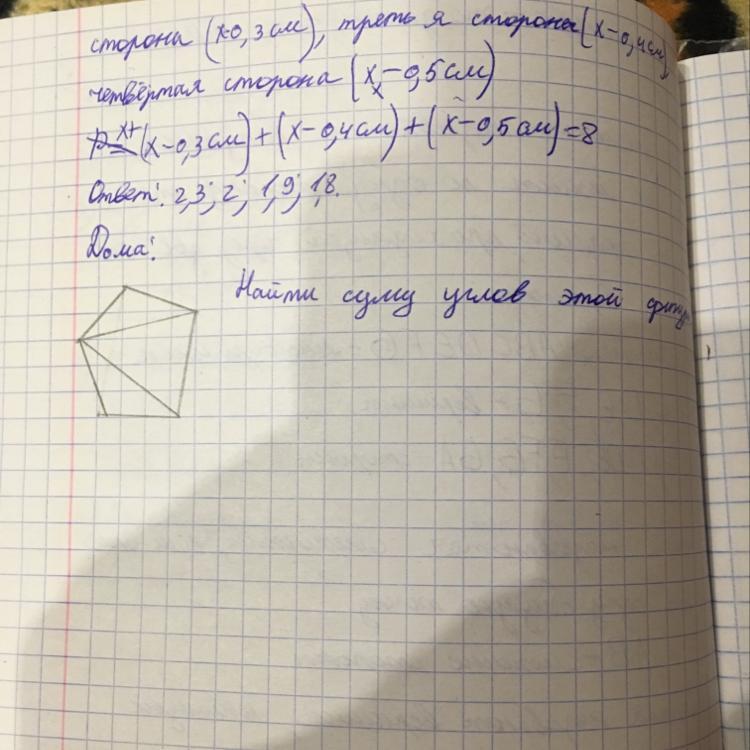 сторона (x-0,3 см), треть я сторона (x-0,4см)
четвёртая сторона (x-0,5см)
P= x+(x-0,3см)+(x-0,4см)+(x-0,5см)=8
Ответ: 2,3; 2; 1,9; 1,8.
Дома:
Найти суму углов этой